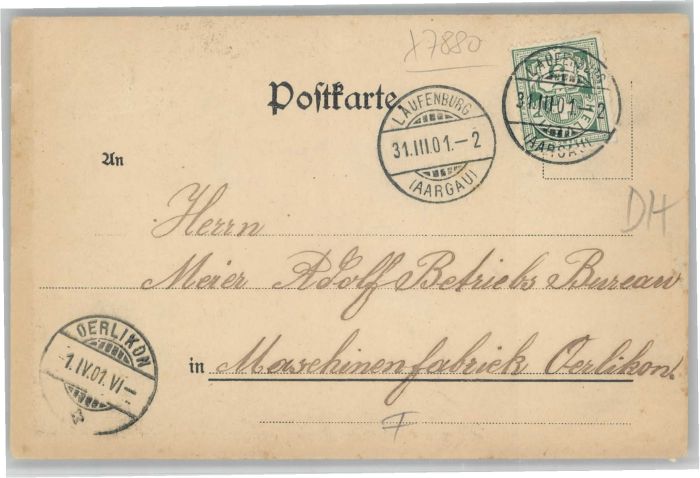 X7880
Postkarte
LAUFENBURG
31.III.01.–2
(AARGAU)
LAUFENBURG
31.III.01.–2
(AARGAU)
An
DH
Herrn
Meier Adolf Betriebs Bureau
in Maschinenfabriek Oerlikon.
OERLIKON
1.IV.01.VI–
I